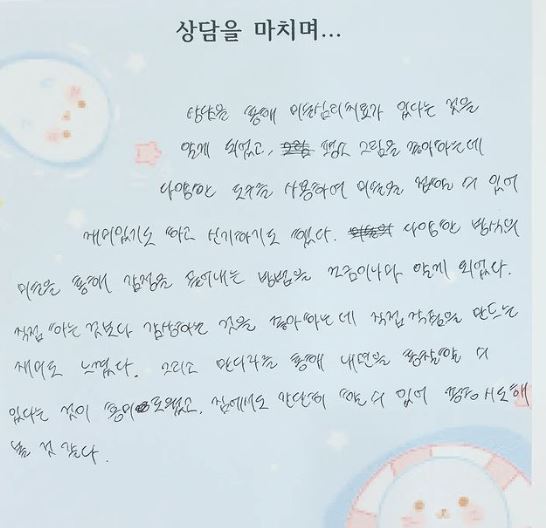 상담을 마치며...
상담을 통해 미술심리치료가 있다는 것을
알게 되었고, 평소 그림을 좋아하는데
다양한 도구를 사용하여 미술을 접할 수 있어
재미있기도 하고 신기하기도 했다. 다양한 방식의
미술을 통해 감정을 풀어내는 방법을 조금이나마 알게 되었다.
직접 하는 것보다 감상하는 것을 좋아하는데 직접 작품을 만드는
재미도 느꼈다. 그리고 만다라를 통해 내면을 통찰할 수
있다는 것이 흥미로웠고, 집에서도 간단히 할 수 있어 종종 시도해
볼 것 같다.